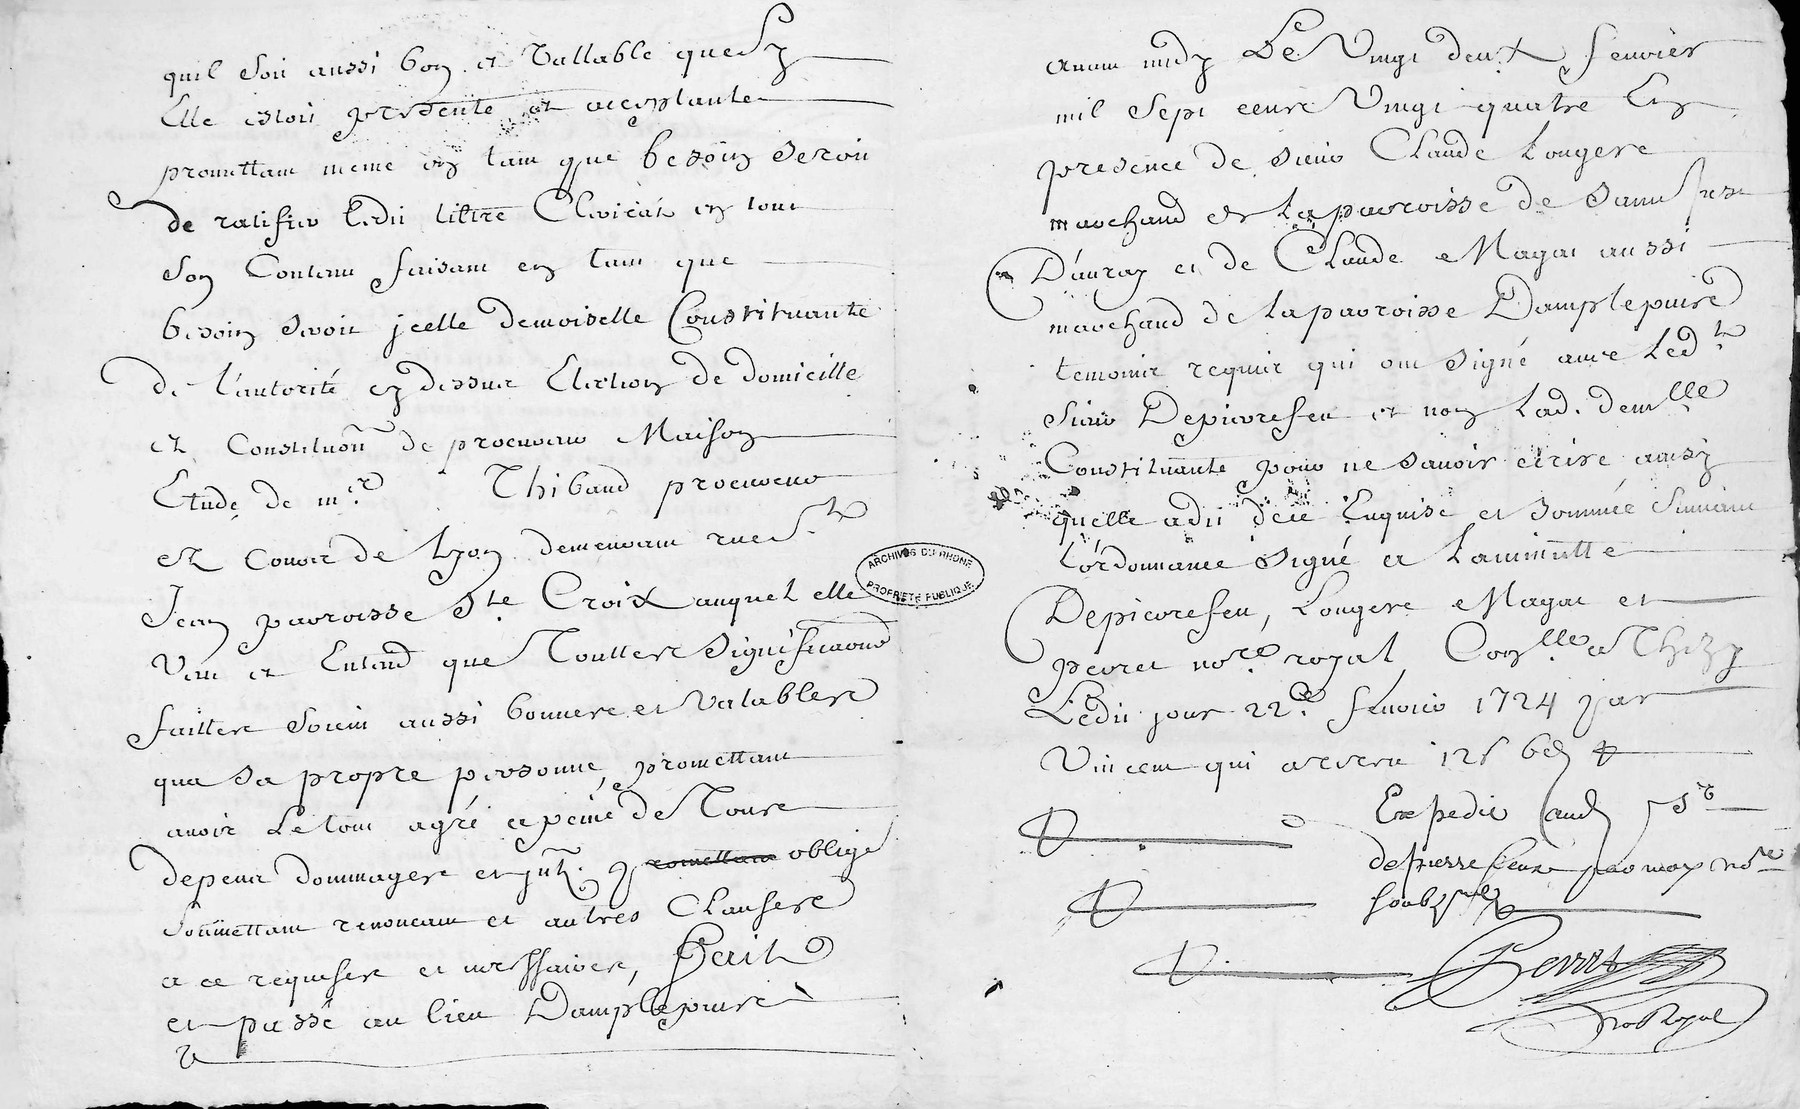 quil soit aussi bon et vallable que sy
Elle estoit presente et acceptante
promettant meme en tant que besoin seroit
de ratifier ledit tiltre Clerical en tout
son Contenu faisant en tant que
besoin seroit jcelle demoiselle Constituante
de l'autorité cy dessus Election de domicille
et Constituõn de procureur Maison
Etude de mr. Thibaud procureur
ez Cours de Lyon demeurant rue St.
Jean parroisse Ste. Croix auquel elle
Veut et Entend que Touttes significaõns
faittes soient aussi bonnes et valables
qua sa propre personne, promettant
avoir Le tout agré a peine de Tous
depens dommages et jnt. promettant obligé
soumettant renoncant et autres Clauses
a ce requises et necessaires, Fait
et passé au lieu Damplepuis
avant midy Le Vingt deux fevrier
mil sept cens Vingt quatre En
presence de sieur Claude Longere
marchand de La parroisse de Saint Just
Dauray et de Claude Magat aussi
marchand de La parroisse Damplepuis
temoins requis qui ont signé avec Led. t
sieur Depierefeu et non Lad. demlle
Constituante pour ne savoir ecrire ainsy
quelle a dit de ce Enquise et sommée suivant
l'ordonnance signé a La minutte
Depierefeu, Longere Magat et
perret nore. royal Conlle a Thizy
Ledit jour 22e. fevrier 1724 par
Vincent qui a receu 12s 6d
Expedié aud sr
depierrefeu par moy nore
soubzné
Perret
no Royal
ARCHIVES DU RHONE
PROPRIETE PUBLIQUE